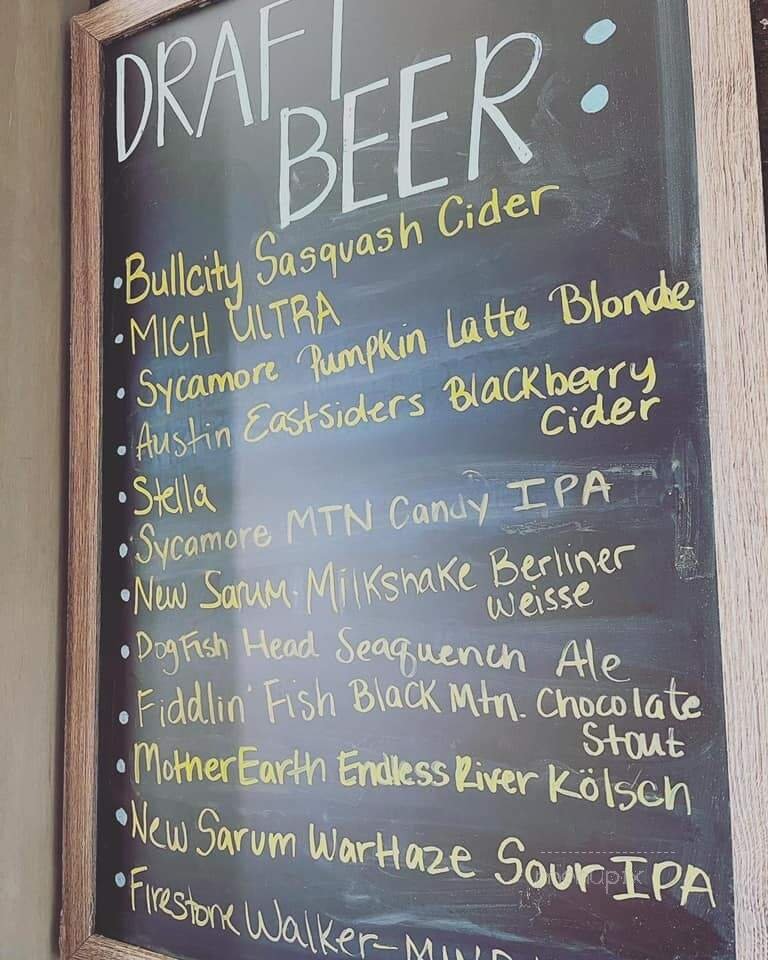 DRAFT
BEER:
• Bullcity Sasquash Cider
• MICH ULTRA
• Sycamore Pumpkin Latte Blonde
• Austin Eastsiders Blackberry
Cider
• Stella
• Sycamore MTN Candy IPA
• New Sarum Milkshake Berliner
Weisse
• DogFish Head Seaquench Ale
• Fiddlin' Fish Black Mtn. Chocolate
Stout
• Mother Earth Endless River Kölsch
• New Sarum WarHaze Sour IPA
• Firestone Walker-